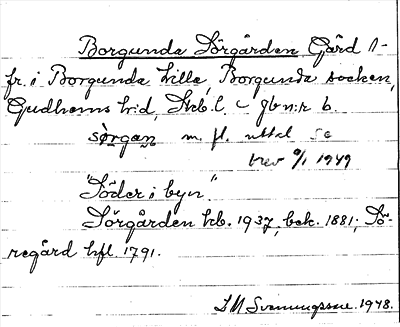 Borgunda Sörgården Gård 1-
fr. i Borgunda Lilla, Borgunda socken,
Gudhems hrd, Skb. l. – jbn:r 6.
sörgan m. fl. uttal se
brev 9/1 1949
"Söder i byn".
Sörgården kb. 1937, bek. 1881; Sö-
regård hfl. 1791.
S M Svenungsson. 1948.